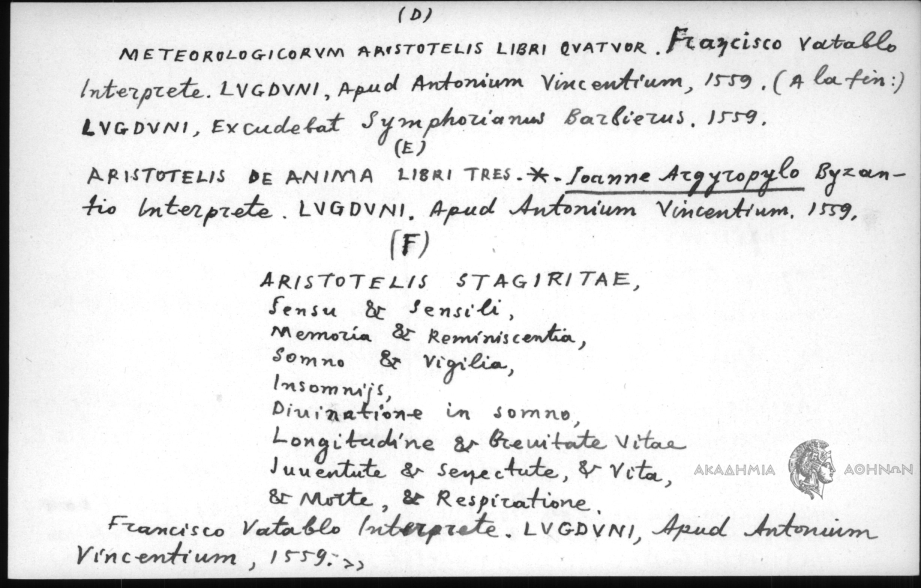 (D)
METEOROLOGICORVM ARISTOTELIS LIBRI QVATVOR. Francisco Vatablo
Interprete. LVGDVNI, Apud Antonium Vincentium, 1559. (A la fin:)
LVGDVNI, Excudebat Symphorianus Barbierus. 1559.
(E)
ARISTOTELIS DE ANIMA LIBRI TRES. *. Ioanne Argyropylo Byzan-
tio Interprete. LVGDVNI. Apud Antonium Vincentium. 1559.
(F)
ARISTOTELIS STAGIRITAE,
Sensu & Sensili,
Memoria & Reminiscentia,
Somno & Vigilia,
Insomnijs,
Diuinatione in somno,
Longitudine & breuitate Vitae
Iuuentute & senectute, & Vita,
& Morte, & Respiratione.
ΑΚΑΔΗΜΙΑ ΑΘΗΝΩΝ
Francisco Vatablo Interprete. LVGDVNI, Apud Antonium
Vincentium, 1559.>>